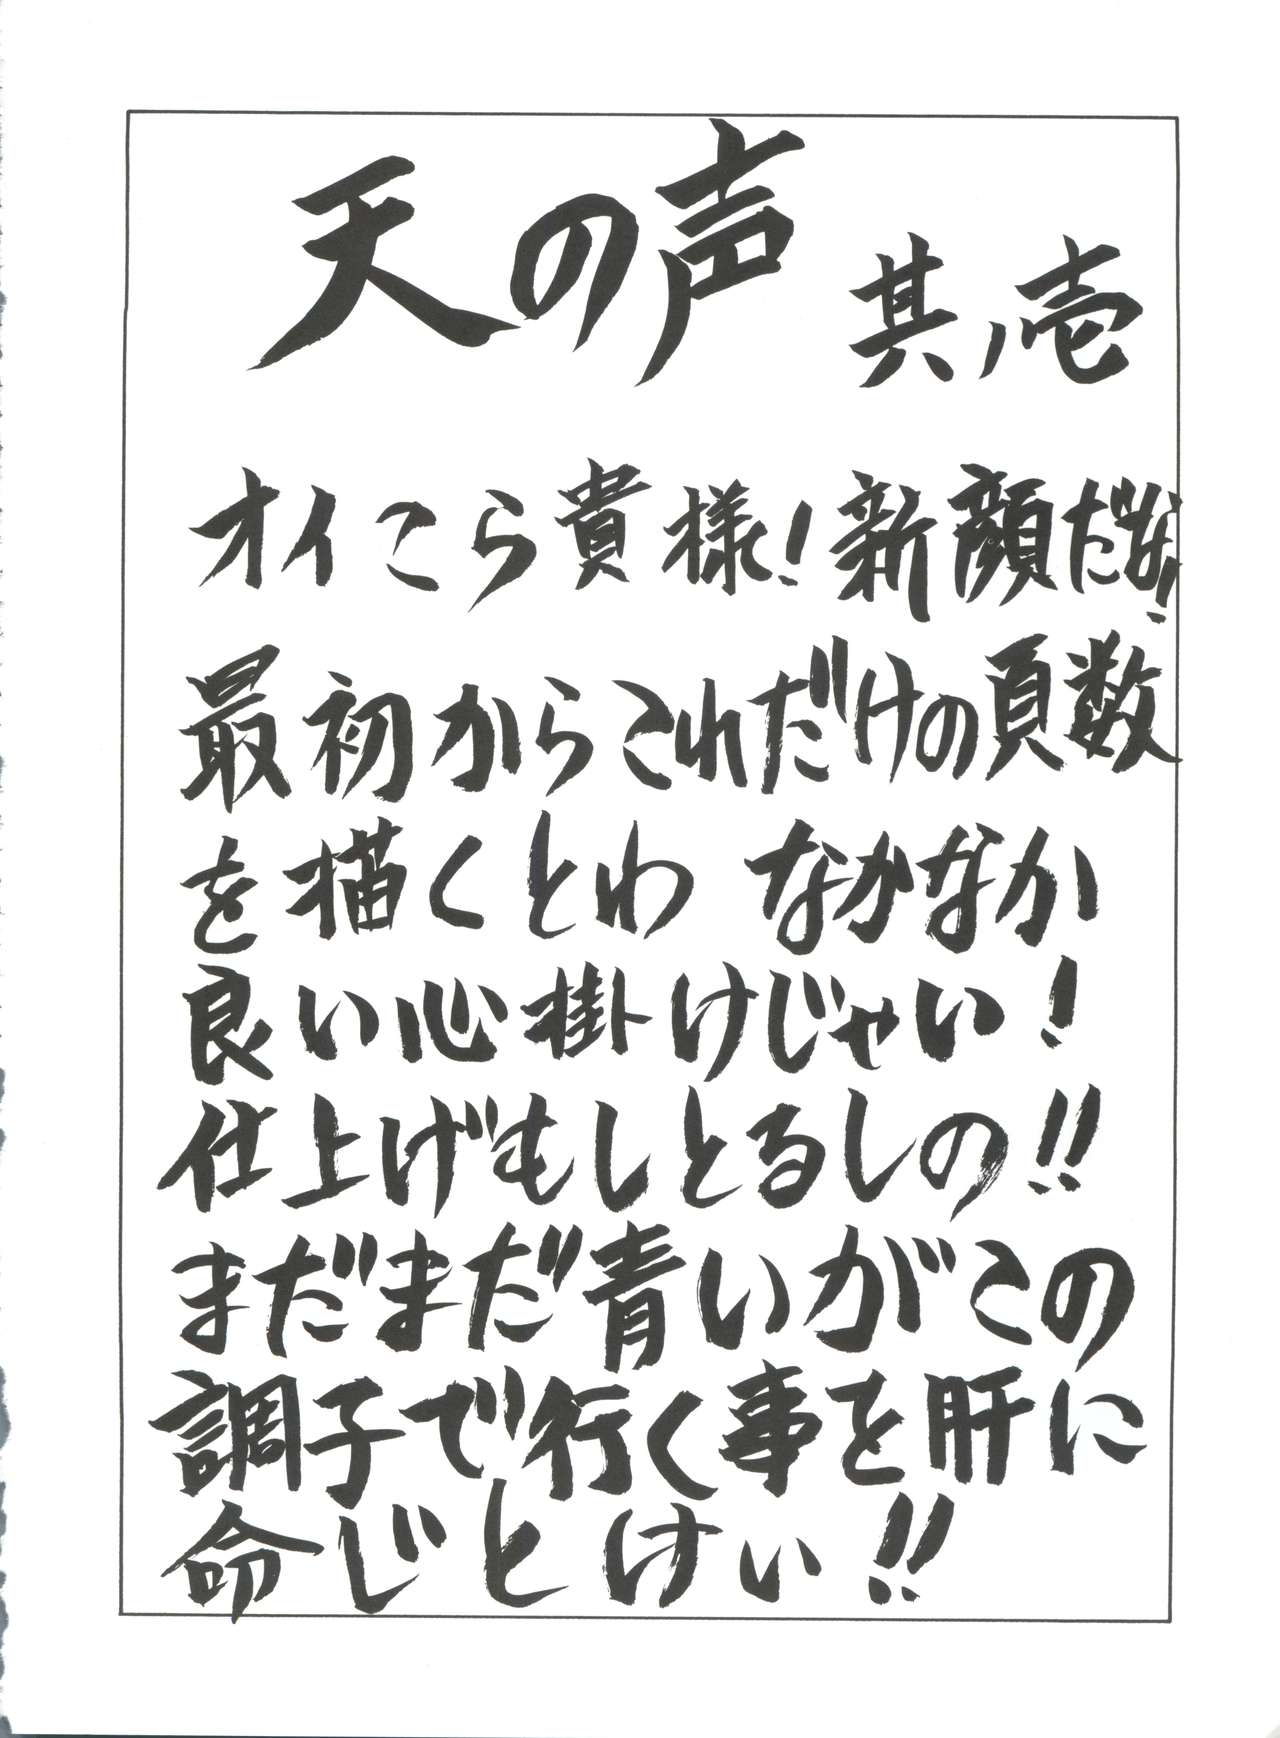 天の声 其ノ壱
オイこら貴様！新顔だな！
最初からこれだけの頁数
を描くとわ なかなか
良い心掛けじゃい！
仕上げもしとるしの！！
まだまだ青いがこの
調子で行く事を肝に
命じとけぃ！！